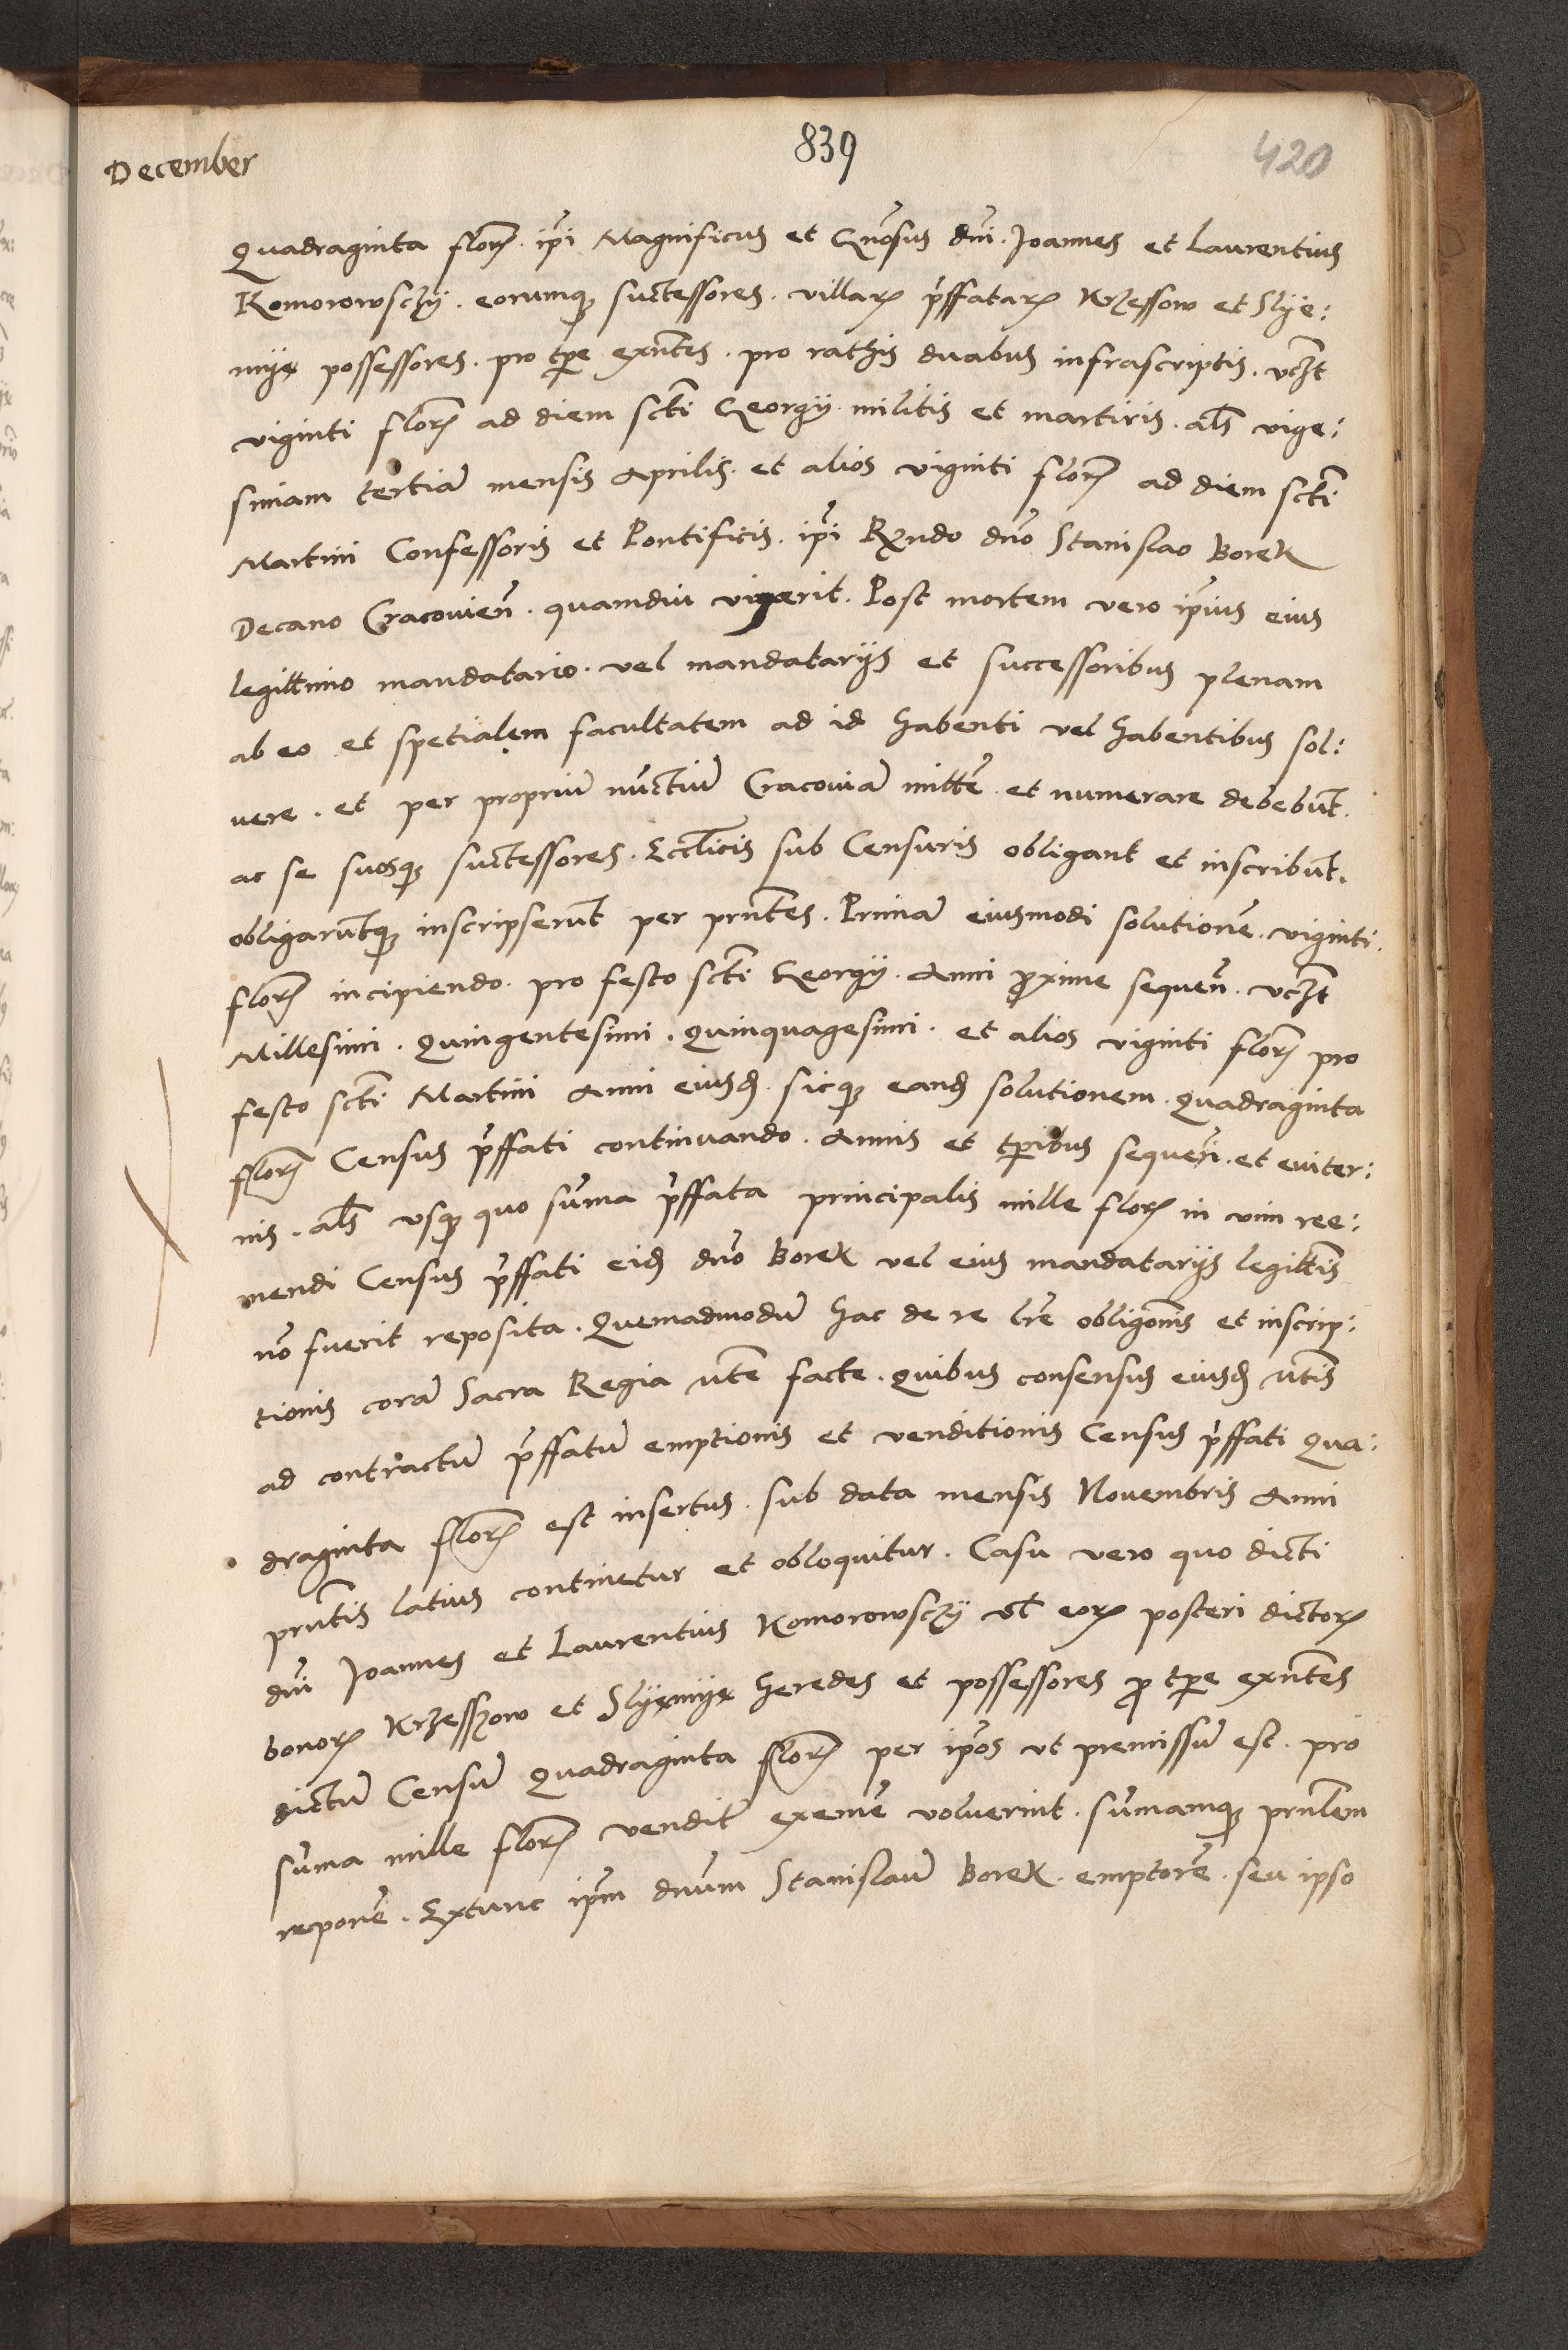 December
839
420
Quadraginta floꝝ. ip̃i Magnificus et Gñosus dñi. Joannes et Laurentius
Komorowsczÿ. eorumqꝫ suctessores. villaꝝ p̃ffataꝝ Krzessow et Slÿe:
mÿe possessores. pro tp̃e exñtes. pro rathis duabus infrascriptis. vczt
viginti floꝝ ad diem scti Georgÿ militis et martiris. als̃ vige:
simam tertiã mensis Aprilis. et alios viginti floꝝ ad diem scti
Martini Confessoris et Pontificis. ip̃i Rx̃ndo dño Stanislao Borek
Decano Cracovieñ. quamdiu vixerit. Post mortem vero ip̃ius eius
legittimo mandatario. vel mandatarÿs et successoribus plenam
ab eo et spetialem facultatem ad id habenti vel habentibus sol:
vere. et per propriũ nũctiũ Cracouiã mittẽ. et numerare debebũt.
ac se suosqꝫ suctessores. Eccl̃icis sub Censuris obligant et inscribũt.
obligarũtqꝫ inscripserũt per pñtes. Primã eiusmodi solutionẽ. viginti.
floꝝ incipiendo. pro festo scti Georgÿ. Anni ꝓxime sequeñ. vczt
Millesimi. Quingentesimi. Quinquagesimi. et alios viginti floꝝ pro
festo scti Martini Anni eiusđ. sicqꝫ eanđ solutionem. Quadraginta
floꝝ Census p̃ffati continuando. Annis et tp̃ibus sequeñ. et eviter:
nis. als̃ usqꝫ quo sũma p̃ffata principalis mille floꝝ in vim ree:
mendi Census p̃ffati eiđ dño Borek vel eius mandatarÿs legittĩs
nõ fuerit reposita. Quemadmodũ hac de re lr̃e obligõnis et inscrip:
tionis corã Sacra Regia Mte facte. Quibus consensus eiusđ Mtis
ad contractũ p̃ffatũ emptionis et venditionis Census p̃ffati Qua:
draginta floꝝ est insertus. sub data mensis Novembris Anni
pñtis latius continetur et obloquitur. Casu vero quo dicti
dñi Joannes et Laurentius Komorowsczÿ vl̃ eoꝝ posteri dictoꝝ
bonoꝝ Krzesszow et Slÿemÿe heredes et possessores ꝓ tp̃e exñtes
dictũ Censũ Quadraginta floꝝ per ip̃os ut premissũ est. pro
sũma mille floꝝ vendit̃ exemẽ voluerint. sũmamqꝫ prñlem
reponẽ. Extunc ip̃m dñum Stanislaũ Borek. emptorẽ. seu ipso